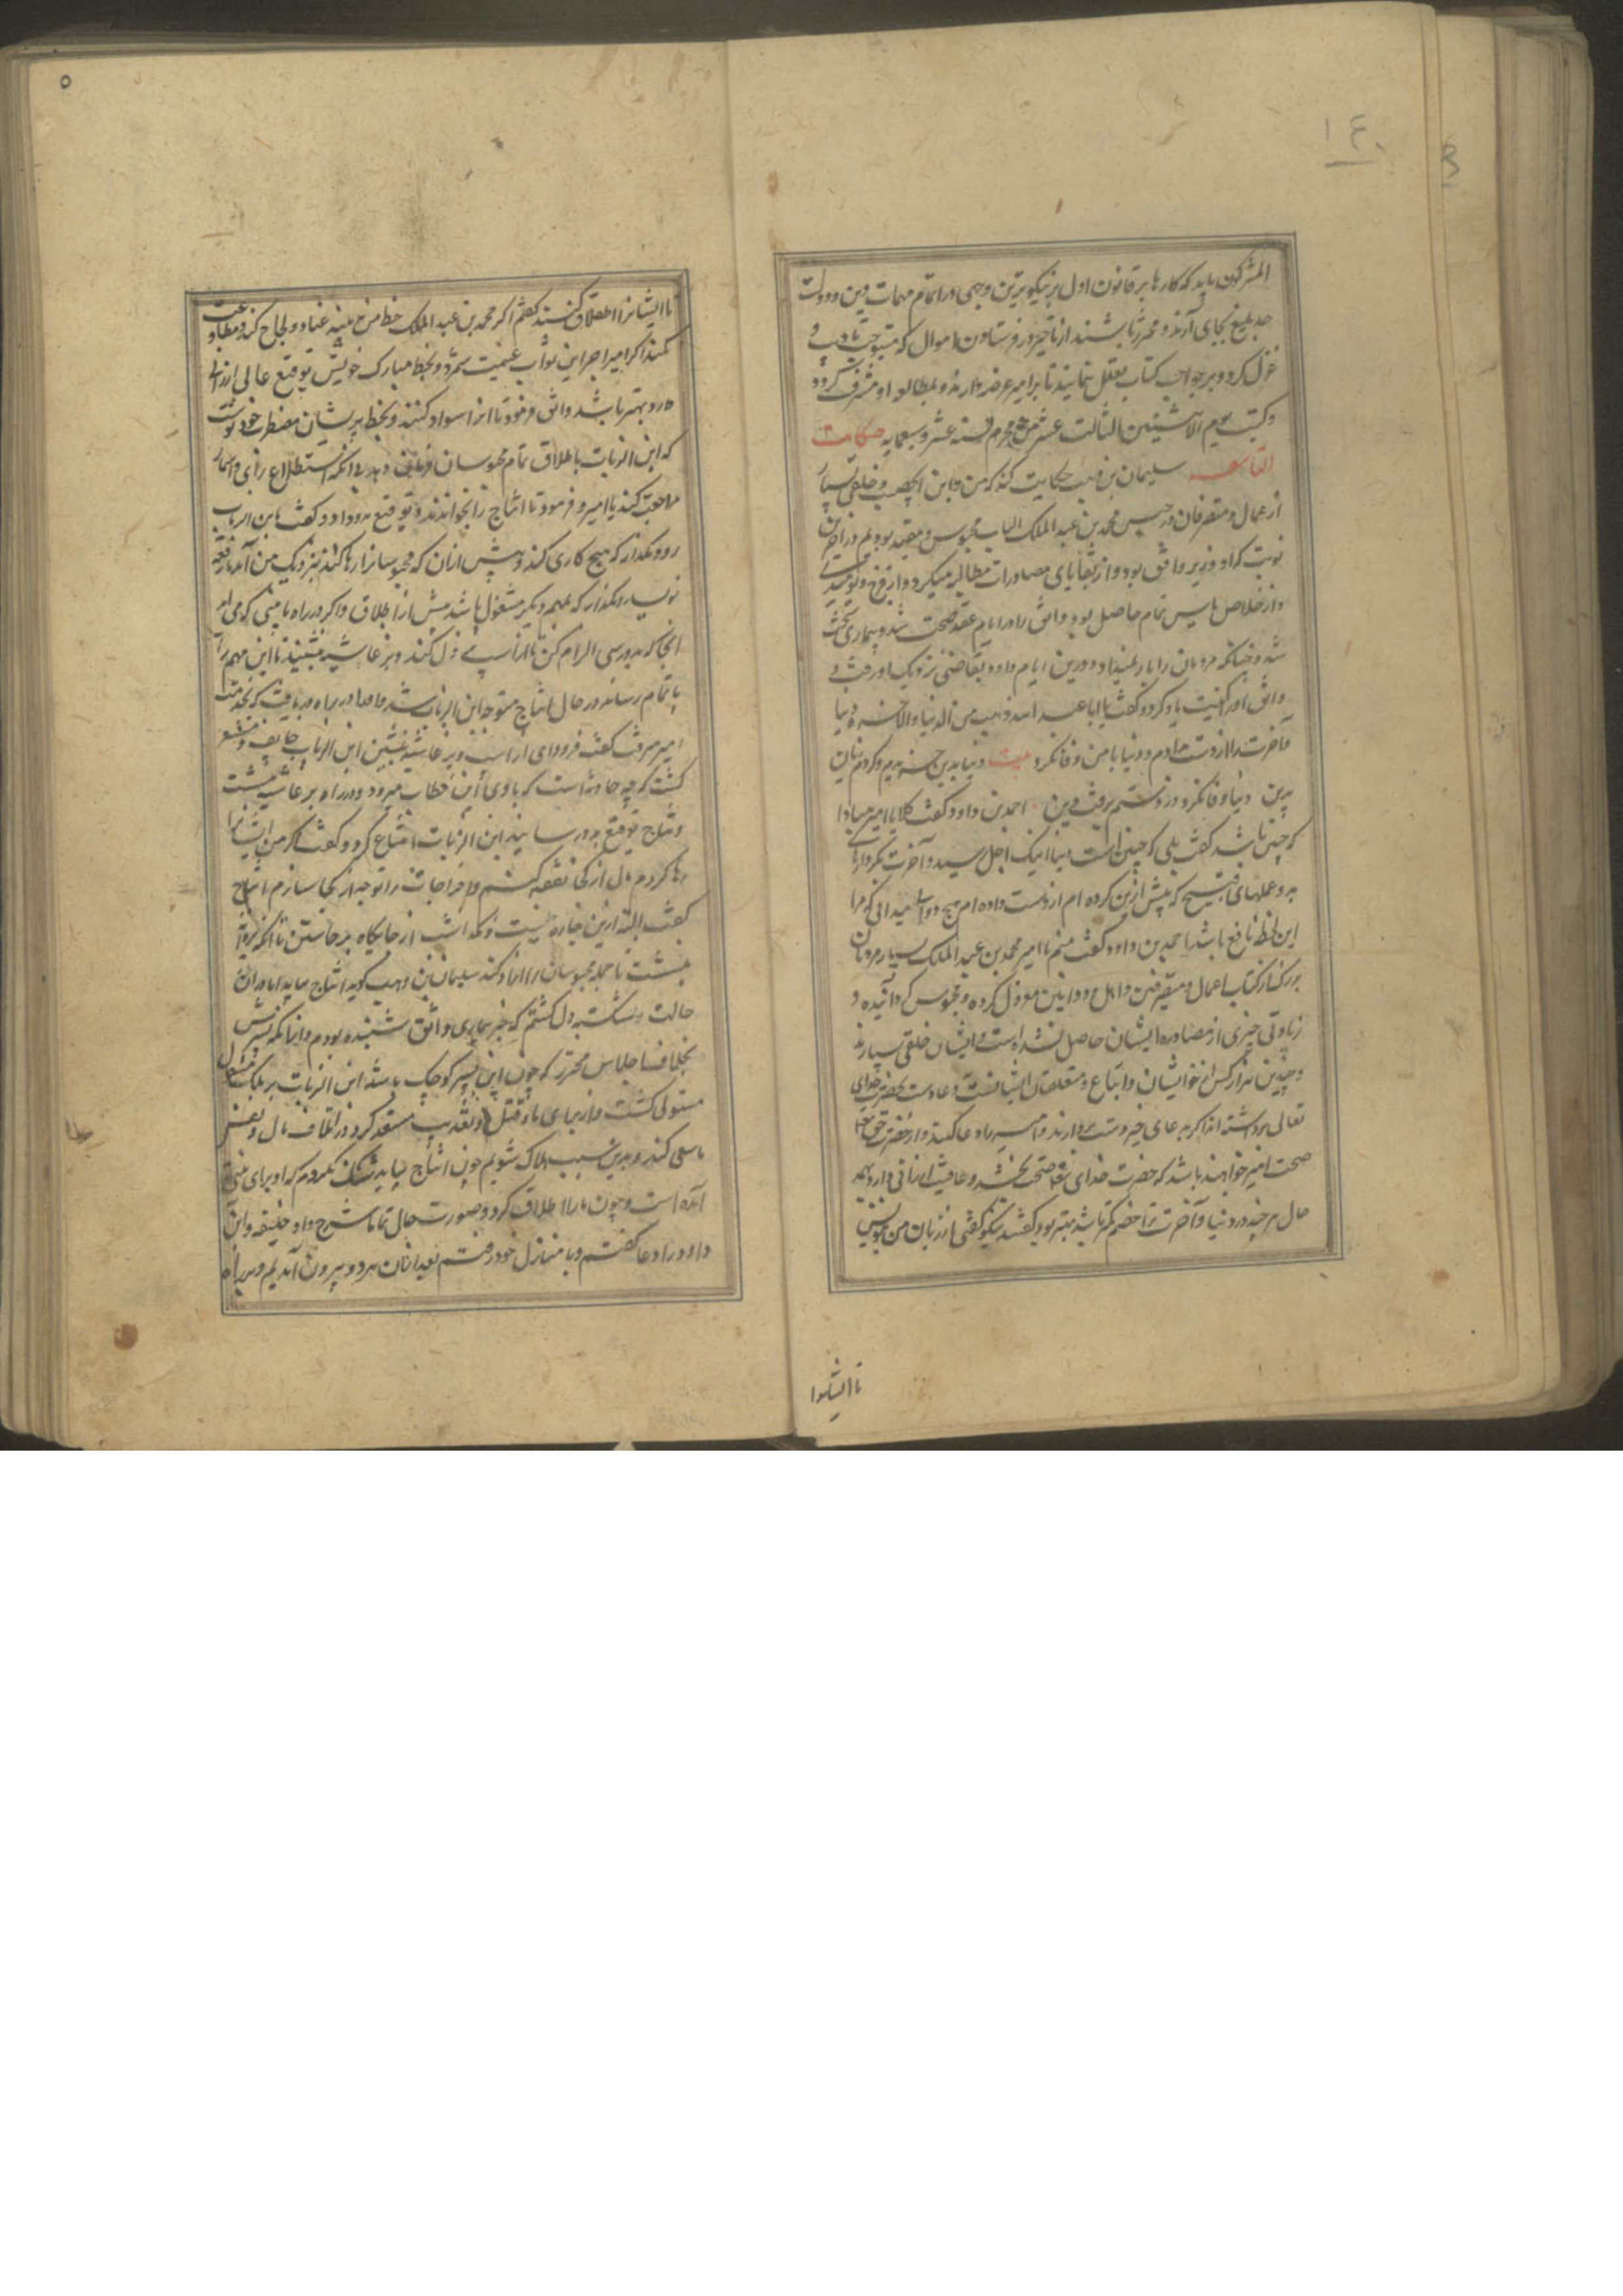 المشرکون باید که کارها بر قانون اول بر نیکوترین وجهی در اتمام مهمات دین و دولت
جد بلیغ بجای آرند و محترز باشند از تاخیر در فرستادن اموال که مستوجب تادیب و
عزل کردد و بر جواب کتاب تعلل ننمایند تا بر امیر عرضه دارند و بمطالعه او مشرف کردد
وکتب یوم الاثنین الثالث عشر من محرم سنه عشر و سبعمایه حکایت
التاسعه سلیمان بن وهب حکایت کند که من و ابن الخصیب و خلقی بسیار
از عمال و متصرفان در حبس محمد بن عبد الملک الزیات محبوس و مقید بودیم و در آخر آن
نوبت که او وزیر واثق بود و از بقایای مصادرات مطالبه میکرد و از فرج نومید
و از خلاص یاس تمام حاصل بود واثق را در ایام عقد صحت شد و بیماری سخت
شد و چنانکه مردمان را بار نمیداد و درین ایام داود بقاضی نزدیک او رفت
واثق او را بکنیت یاد کرد و کفت یا ابا عبد الله ذهب من الدنیا والاخره دنیا
و آخرت را از دست دادم و دنیا با من وفا نکرد بیت دنیا بدین خریدم و کردم زیان
بدین دنیا وفا نکرد و ز دستم برفت دین احمد بن داود کفت کلا یا امیر مبادا
که چنین باشد کفت بلی که چنین است دنیا اینک اجل رسید و آخرت بکردارهای
بد و عملهای قبیح که پیش ازین کرده ام از دست داده ام هیچ دوا میدانی که مرا
این لحظه نافع باشد احمد بن داود کفت منم یا امیر محمد بن عبد الملک بسیار مردمان
بزرک از کتاب اعمال و متصرفین و اهل دواوین معزول کرده و محبوس کردانیده و
زیادتی چیزی از مصادره ایشان حاصل نشده است و ایشان خلقی بسیارند
و چندین هزار کس از خویشان و اتباع و متعلقان ایشانست و دعا و دست بحضرت خدای
تعالی برداشته اند اکر بدعای خیر دست بردارند و امیر را دعا کنند و از حضرت حق تعالی
صحت امیر خواهند باشد که حضرت خدای تعالی صحت بخشد و عافیت ارزانی دارد و بهمه
حال هرچند در دنیا و آخرت ترا خصم کمتر باشد بهتر بود کفت نیکو کفتی از زبان من بنویس
تا ایشانرا
۵
تا ایشانرا اطلاق کنند کفتم اکر محمد بن عبد الملک خط من بیند عناد و لجاج کند و مطاوعت
نکند اکر امیر اجر این ثواب غنیمت شمرد و بخط مبارک خویش توقیع عالی ارزانی
دارد بهتر باشد واثق فرمود تا انرا سواد کنند و بخط پریشان مضطرب خود نوشت
که ابن الزیات باطلاق تمام محبوسان فرمان دهد بی آنکه استطلاع رای و استمار
مراجعت کند با امیر و فرمود تا ایتاج را بخواندند و توقیع بدو داد و کفت با ابن الزیات
رو و مکذار که هیچ کاری کند پیش از آن که محبوسانرا رها کند نزدیک من آید یا رقعه
نویسد و مکذار که بمهم دیکر مشغول باشد پیش از اطلاق و اکر در راه با بینی که می آید
انجا که بدو رسی الزام کن تا از اسب نزول کند و بر غاشیه بنشیند تا این مهم را
باتمام رساند در حال ایتاج متوجه ابن الزیات شد و او را در راه دریافت که بخدمت
امیر میرفت کفت فرود آی از اسب و بر غاشیه بنشین ابن الزیات خایف و مستشعر
کشت که چه حادثه است که با وی این خطاب میرود و در راه بر غاشیه بنشست
و ایتاج توقیع بدو رسانید ابن الزیات امتناع کرد و کفت اکر من ایشانرا
رها کردم مال از کجا نفقه کنم و اخراجات را توجه از کجا سازم ایتاج
کفت البته ازین چاره نیست و نکذاشت از جایکاه برخاستن تا آنکه پروانه
نبشت تا جمله محبوسان را آزاد کند سلیمان بن وهب کوید ایتاج بیامد اما در آن
حالت شکسته دل کشتم که خبر بیماری واثق شنیده بودم و آنکه پسرش
بخلافت اجلاس محترز که چون این پسر کوچک باشد ابن الزیات بر ملک مشغول
مستولی کشت و از برای ما قتل و تعذیب مستعد کردد در اتلاف مال و نفس
ما سعی کند و بدین سبب هلاک شویم چون ایتاج بیامد شک نکردم که او برای مهمی
آمده است و چون ما را اطلاق کرد و صورت حال تماما شرح داد خلیفه و ابن
داود را دعا کفتم و با منازل خود رفتم بعد از آن هر دو بیرون آمدیم و بر راه